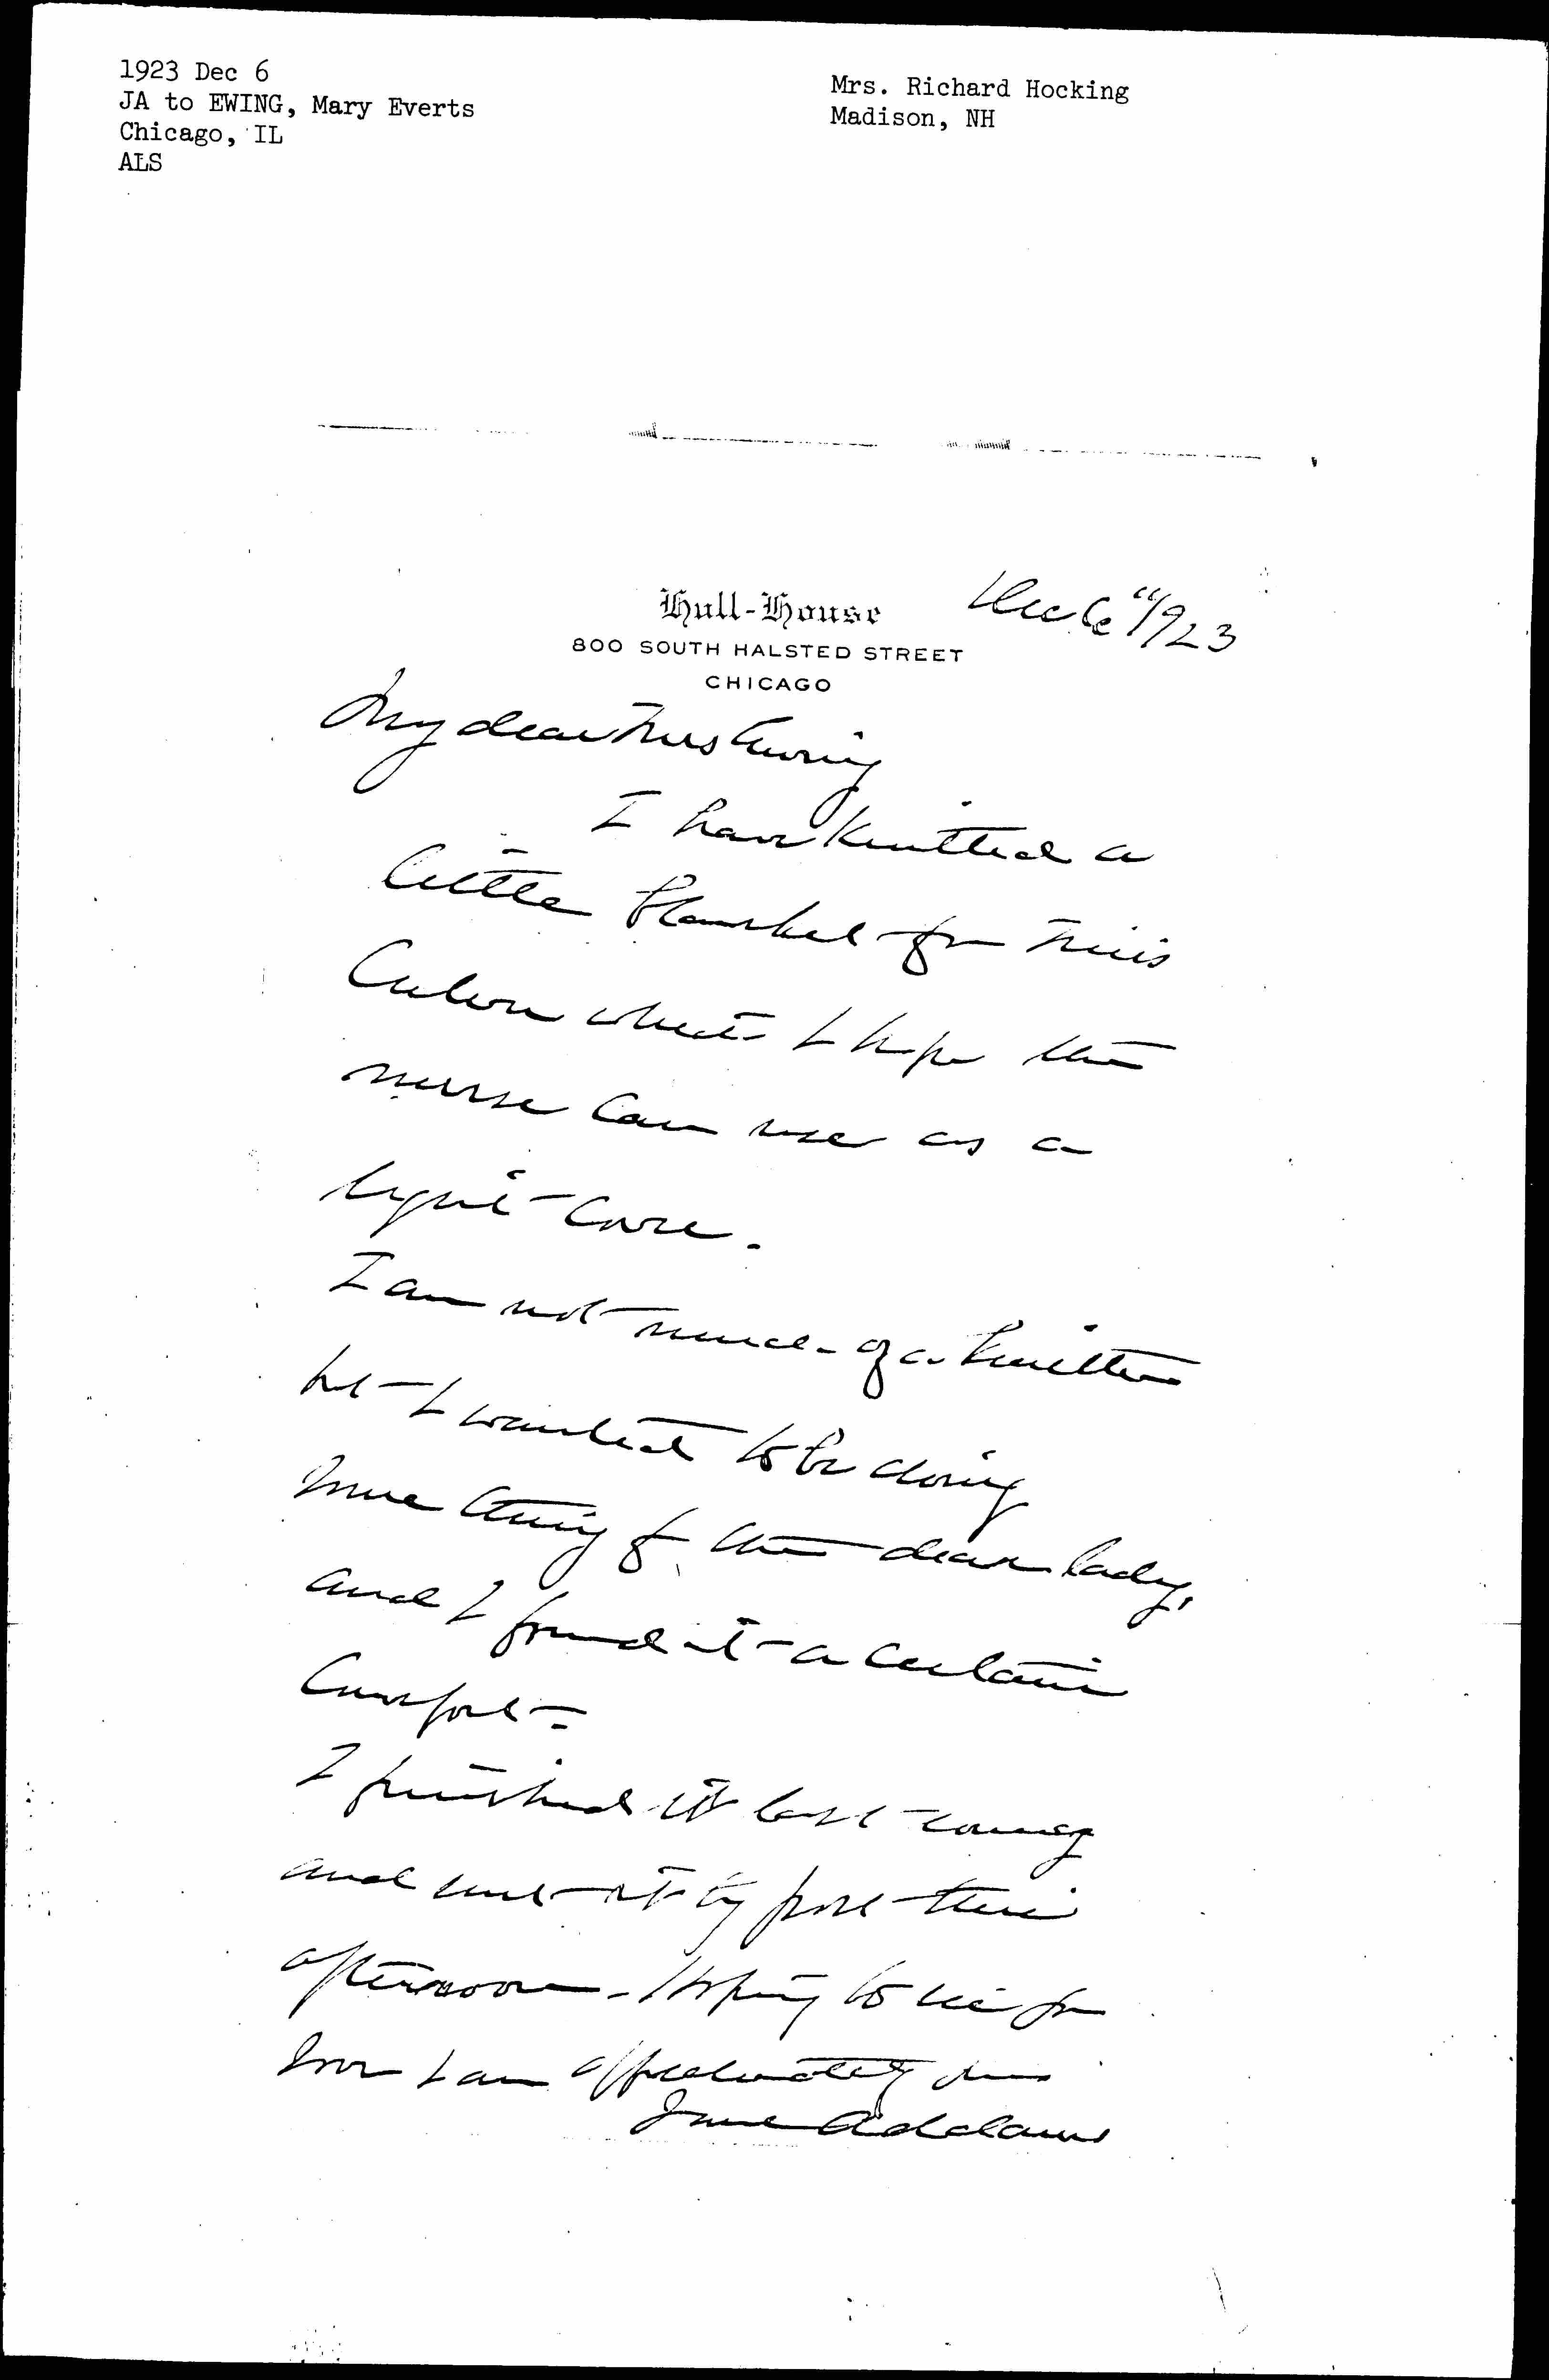 1923 Dec 6
JA to EWING, Mary Everts
Chicago, IL
ALS
Mrs. Richard Hocking
Madison, NH
Hull-House
800 SOUTH HALSTED STREET
CHICAGO
Dec 6" 1923
My dear Mrs Ewing
I have knitted a
little blanket for Miss
Culver which I hope the
nurse can use as a
light cover.
I am not much of a knitter
but I wanted to be doing
something for the dear lady,
and I found it a certain
comfort.
I finished it last evening
and sent it by post this
afternoon. Hoping to see you
soon I am affectionately yours
Jane Addams